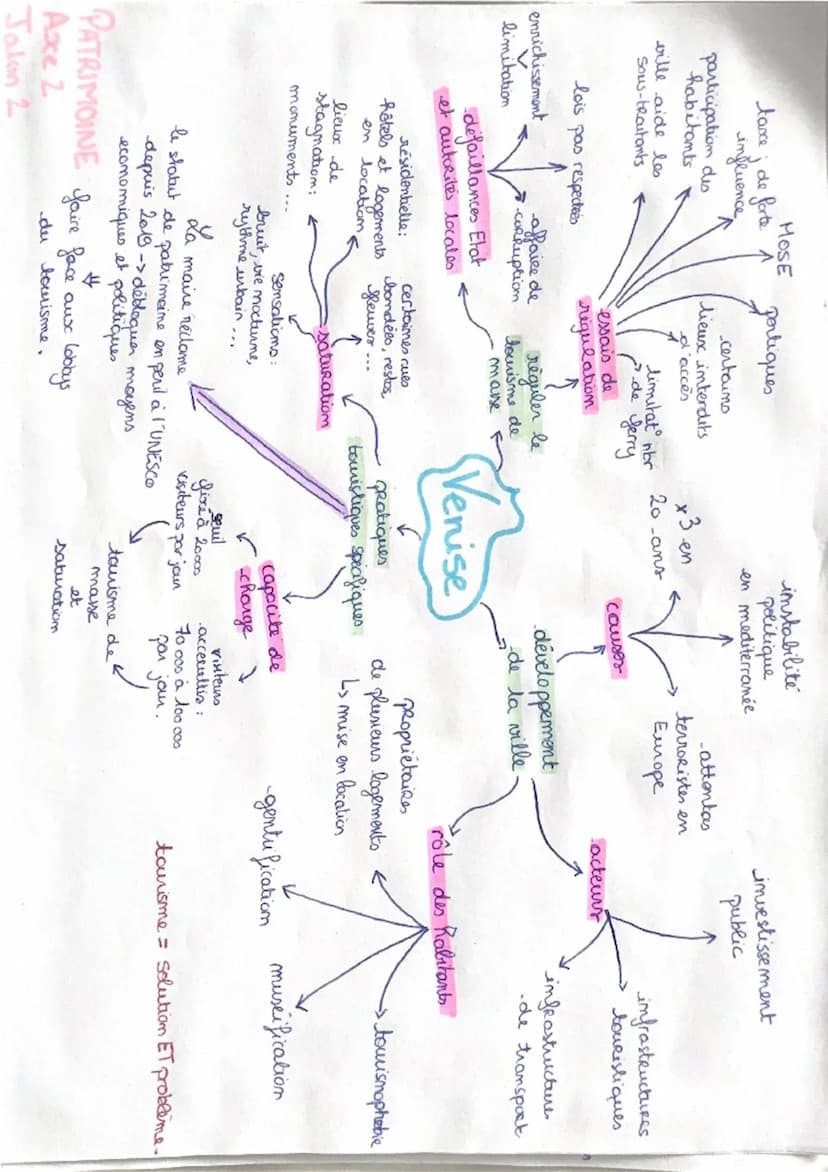 PATRIMOINE
Axe 2
Jalon 2
Venise
réguler le
tourisme de
masse
essais de
régulation
ville aide les
sous-traitants
participation des
habitants
taxe ; de forte
influence
MOSE
portiques
certains
lieux interdits
d'accès
limitat° nbr
de ferry
défaillances Etat
et autorités locales
enrichissement
>
limitation
lois pas respectées
affaire de
corruption
développement
de la ville
causes
x3 en
20 ans
instabilité
politique
en mediterranée
attentas
terroristes en
Europe
acteurs
investissement
public
infrastructures
touristiques
infrastructure
de transport
rôle des habitants
propriétaires
de plusieurs logements
↳ mise en location
gentrification
muséification
tourismophobie
pratiques
touristiques spécifiques
saturation
résidentielle:
hôtels et logements
en location
lieux de
stagnation:
monuments ...
certaines rues
bondées, restos,
fleuves ...
sensations:
bruit, vie nocturne,
rythme urbain ...
capacité de
charge
seuil
fixé à 20 000
visiteurs par jour
visiteurs
accueillis :
70 000 à 100 000
par jour.
tourisme de
masse
et
saturation
La mairie réclame
le statut de patrimoine en péril à l'UNESCO
depuis 2019 -> débloquer moyens
economiques et politiques
⇓
faire face aux lobbys
du tourisme.
tourisme = solution ET problème.